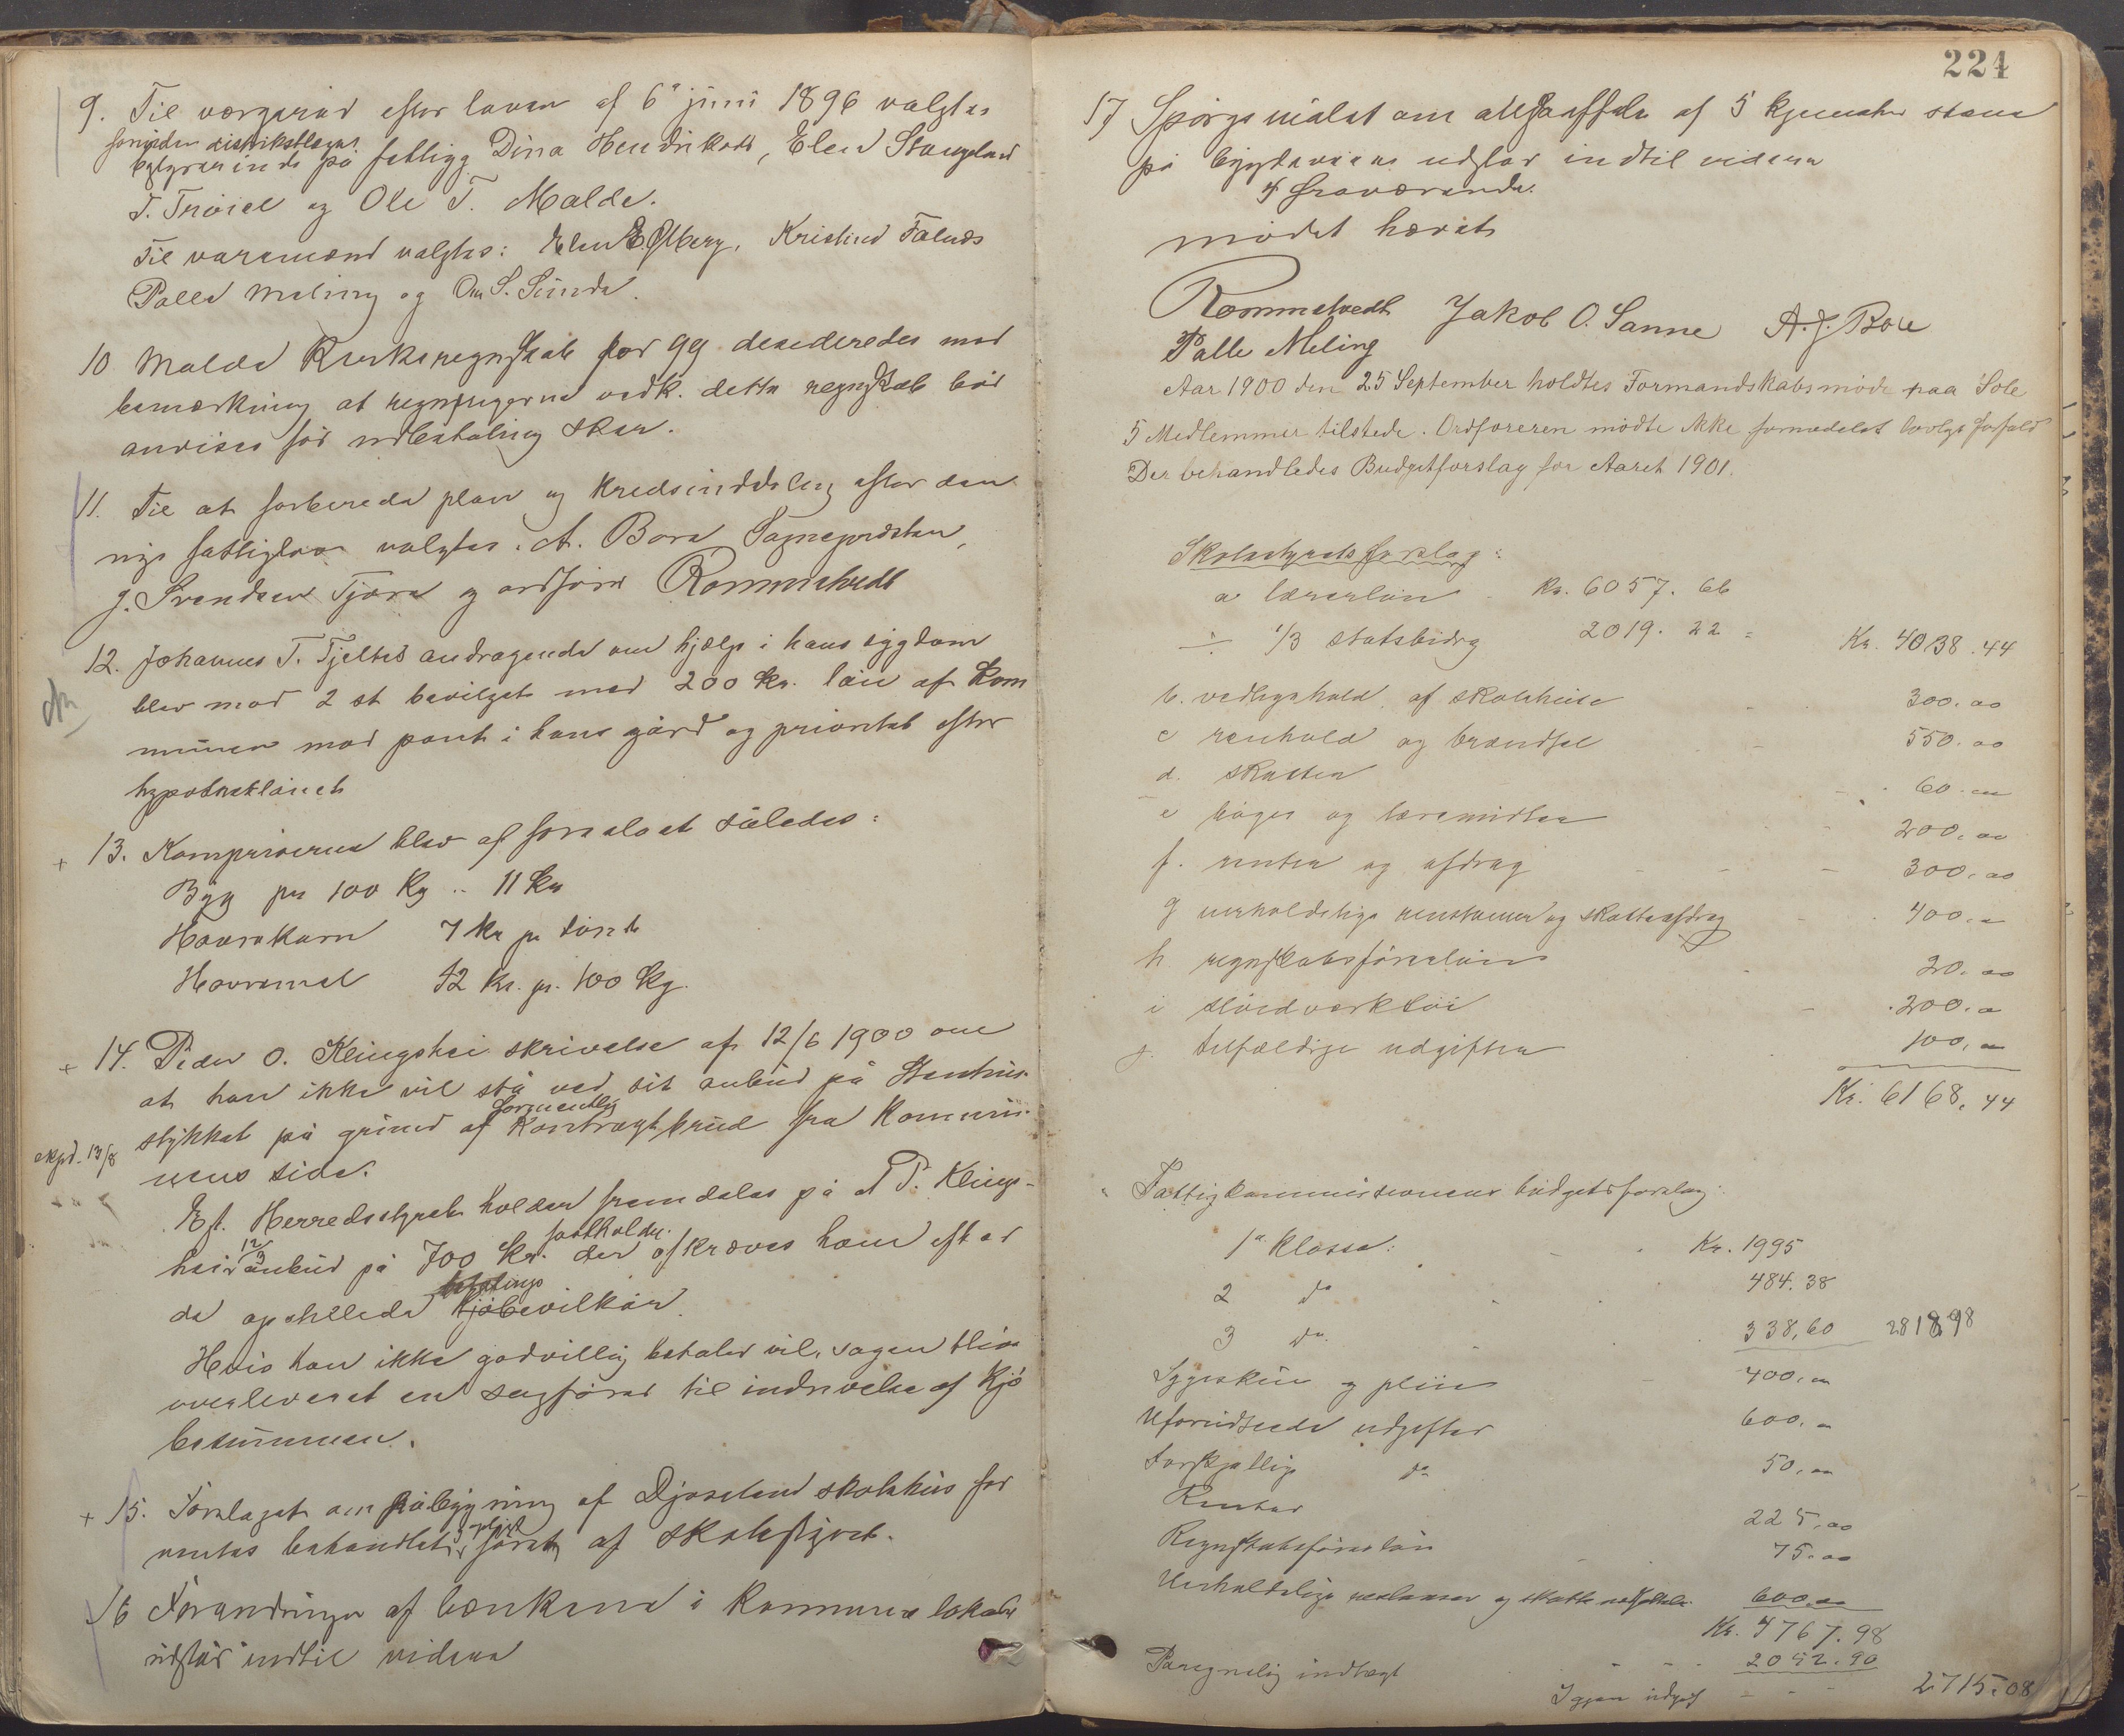 9. Til værgeråd efter loven af 6te juni 1896 valgtes
foruden distriktslægen
bestyrerinde på fattigg Dina Hendriksdt, Elen Stangeland
T. Trøiel og Ole T. Malde.
Til varamænd valgtes: Elen E Ølberg, Kristine Følnæs
Palle Meling og Om S. Sunde.
10 Malde Kirkeregnskab for 99 desideredes med
bemærkning at regningerne vedk. dette regnskab bør
anvises før udbetaling sker.
11. Til at forberede plan og kredsinddeling efter den
nye fattiglov valgtes A. Bore Sogneprdsten,
J. Svendsen Tjora og ordfører Rommetvedt
12. Johannes T. Tjeltes andragende om hjælp i hans sygdom
blev mod 2 st bevilget med 200 Kr. lån af Kom
munen mod pant i hans gård og prioritet efter
hypotheklånet
13. Kornpriserne blev af foreslaaet således:
Byg pr 100 Kg .. 11 Kr
Havrekorn 7 Kr pr tønde
Havremel 12 Kr. pr. 100 Kg.
14. Peder O. Klingshei skrivelse af 12/6 1900 om
at han ikke vil stå ved sit anbud på Stenhus
formentlig
stykket på grund af Kontragtbrud fra Kommu
expd. 13/8
nens side.
Eft. Herredsstyret holder fremdeles på at P. Klings-
12/3 fastholder
heis anbud på 700 Kr. der afkræves ham efter
betalings
de opstillede kjøbevilkår.
Hvis han ikke godvillig betaler vil sagen blive
overleveret en sagfører til inddrivelse af Kjø
besummen.
15. Forslaget om påbygning af Djoseland skolehus for
ventes behandlet først af skolestyret.
16 Forandringer af bænkene i Kommunelokalet
udstår indtil videre
224
17 Spørgsmålet om anskaffelse af 5 kjemiske stene
på bygdeveiene udstår indtil videre
4 fraværende.
mødet hævet
Rommetvedt Jakob O. Sanne A. J. Bore
Palle Meling
Aar 1900 den 25 September holdtes Formandskabsmøde paa Sole
5 Medlemmer tilstede. Ordføreren mødte ikke formedelst lovlige forfald
Der behandledes Budgetforslag for Aaret 1901.
Skolestyrets forslag:
a lærerløn Kr. 6057. 66
÷ 1/3 statsbidrg 2019. 22 = Kr. 4038.44
b. vedligehold af skolehuse 300.00
c renhold og brændsel 550.00
d. skatter 60.00
e bøger og læremidler 200.00
f. renter og afdrag 300.00
g uerholdelige restancer og skatteafdrag 400.00
h regnskabsførerløn 20.00
i sløidværktøi 200.00
j. tilfældige udgifter 100.00
Kr. 6168.44
Fattigkommissionens budgetsforslag:
1ste Klasse: Kr. 1995
2 do 484.38
3 do. 338,60 2818.98
Sygeskur og pleie 400.00
Uforudseede udgifter 600.00
Forskjellige do 50.00
Renter 225.00
Regnskabsførerløn 75.00
Uerholdelige restancer og skatteudfald 600.00
Kr. 4767.98
Paaregnelig indtægt 2052.90
Igjen udgift 2715.08